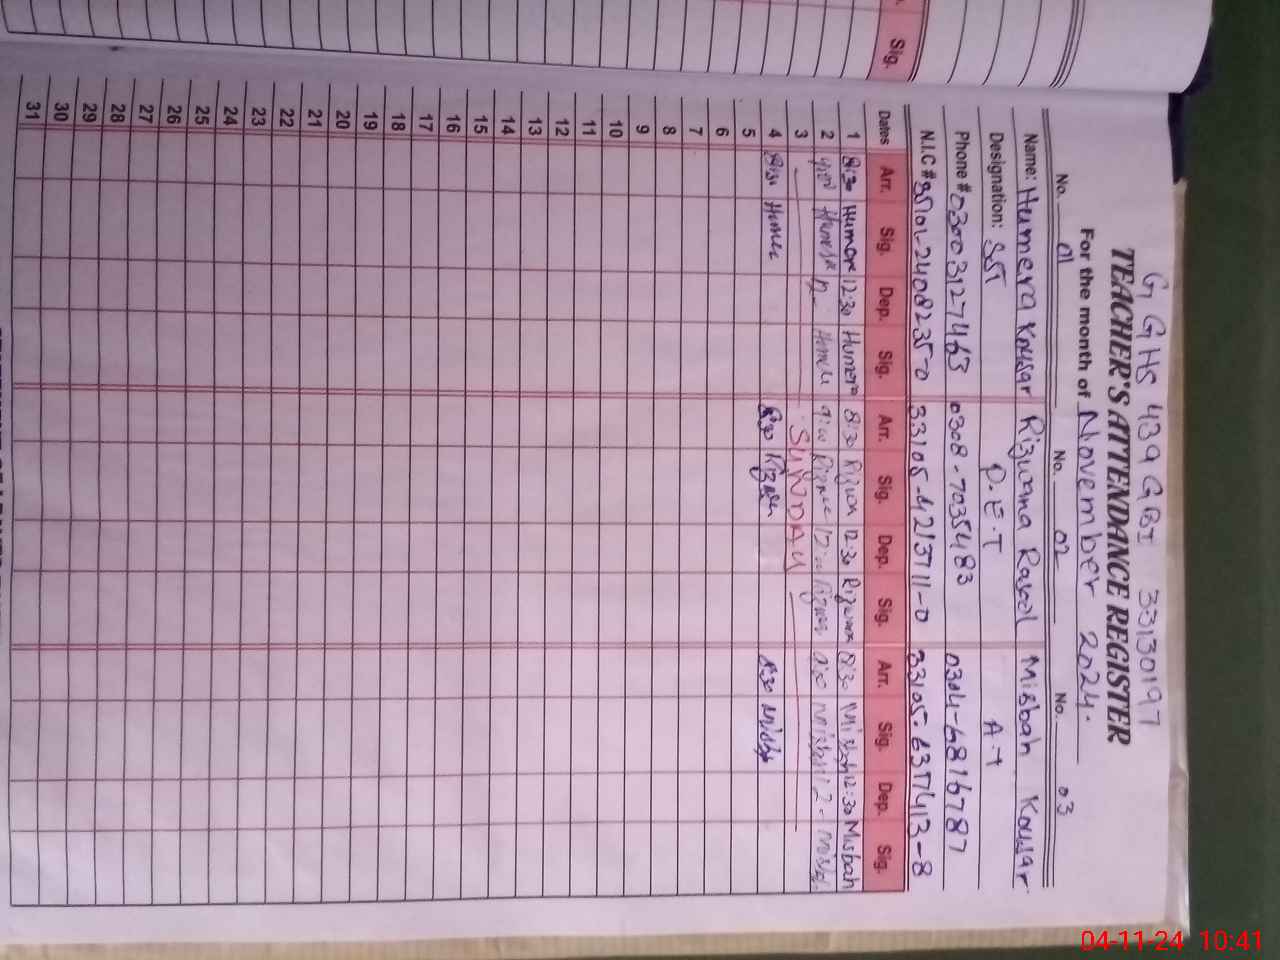 Sig.
G GHS 439 GBI 33130197
TEACHER'S ATTENDANCE REGISTER
For the month of November 2024.
No. 01 No. 02 No. 03
Name: Humera Kousar Rizwana Rasool Misbah Kousar
Designation: SST P.E.T A.T
Phone # 03003127463 0308-7035483 0304-6816787
N.I.C # 35101-2408235-0 33105-4213711-0 33105-6357413-8
Dates Arr. Sig. Dep. Sig. Arr. Sig. Dep. Sig. Arr. Sig. Dep. Sig.
1 8:30 Humera 12:30 Humera 8:30 Rizwan 12:30 Rizwana 8:30 Misbah 12:30 Misbah
2
3 SUNDAY
4 8:30 8:30 8:30
5
6
7
8
9
10
11
12
13
14
15
16
17
18
19
20
21
22
23
24
25
26
27
28
29
30
31
04-11-24 10:41